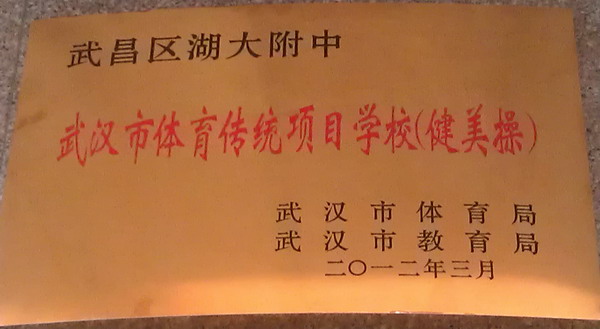 武昌区湖大附中
武汉市体育传统项目学校(健美操)
武汉市体育局
武汉市教育局
二〇一二年三月